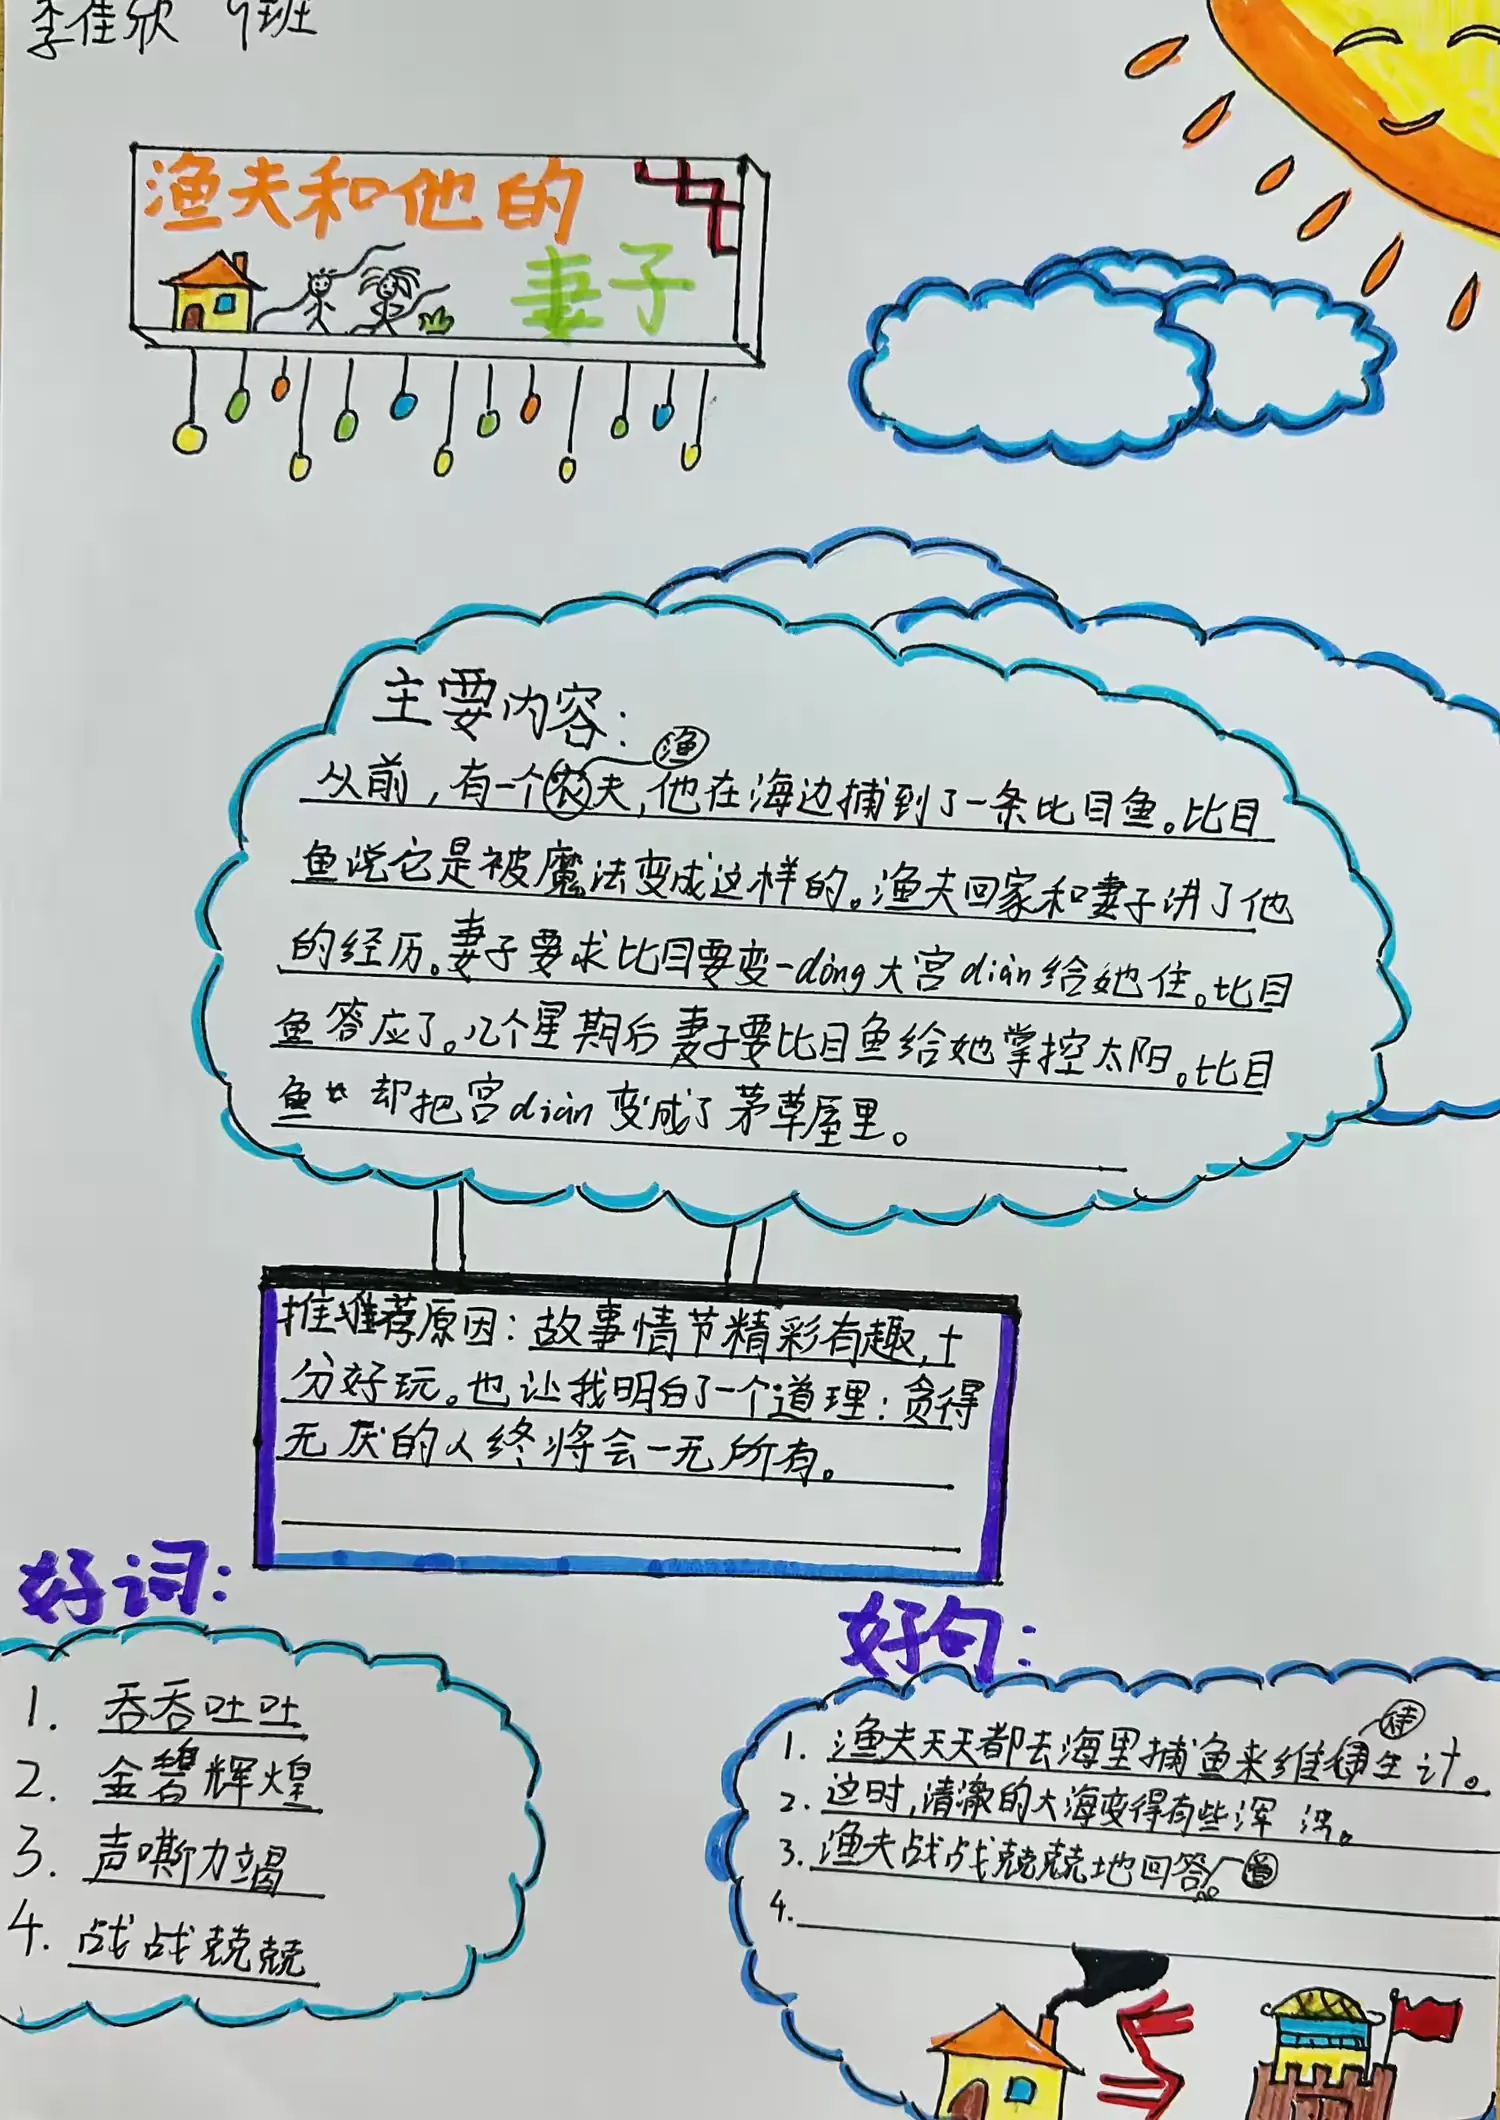 李佳欣 9班
渔夫和他的
妻子
主要内容：
渔
从前，有一个农夫，他在海边捕到了一条比目鱼。比目
鱼说它是被魔法变成这样的。渔夫回家和妻子讲了他
的经历。妻子要求比目要变一dòng大宫diàn给她住。比目
鱼答应了。几个星期后妻子要比目鱼给她掌控太阳。比目
鱼 却把宫diàn变成了茅草屋里。
推推荐原因：故事情节精彩有趣，十
分好玩。也让我明白了一个道理：贪得
无厌的人终将会一无所有。
好词：
1. 吞吞吐吐
2. 金碧辉煌
3. 声嘶力竭
4. 战战兢兢
好句：
持
1. 渔夫天天都去海里捕鱼来维 生计。
2. 这时，清澈的大海变得有些浑 浊。
3. 渔夫战战兢兢地回答 道
4.